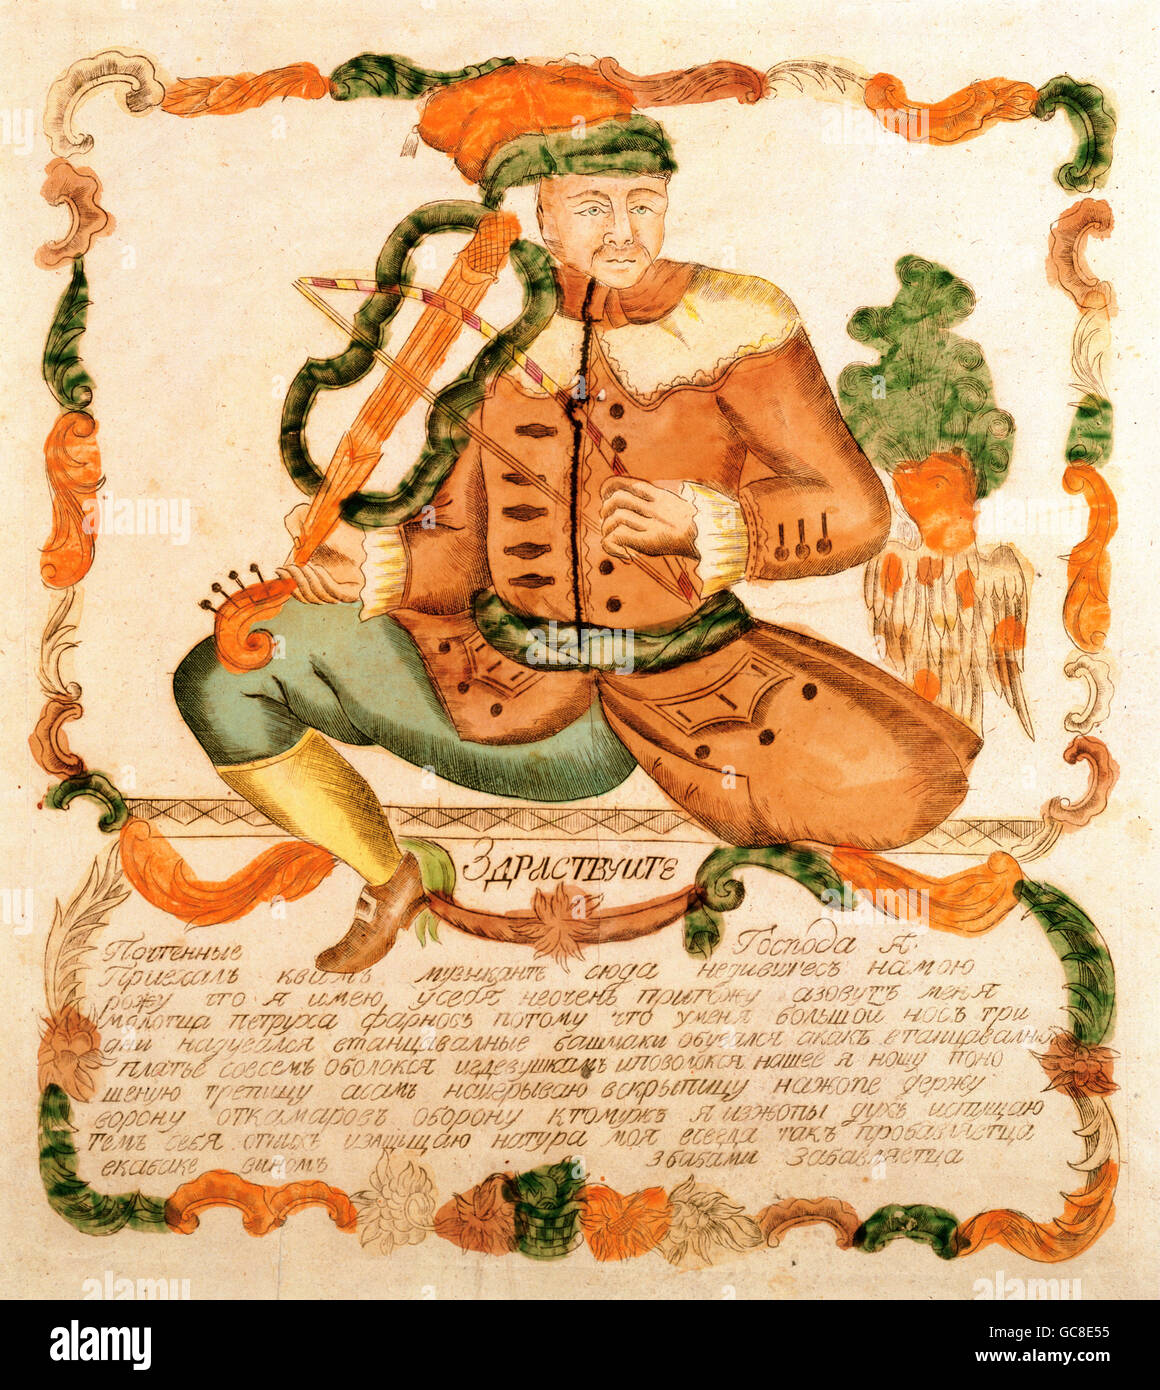 Здраствуите
Почтенные Господа Я.
Приехалъ квамъ музыкантъ сюда недивитесь намою
рожу что я имею усебя неочень пригожу азовутъ меня
молотца петруха фарносъ потому что уменя большой носъ три
дни надувался втанцавалные башмаки обувался акакъ втанцавално
платье совсемъ оболокся кдевушкамъ иповолокся нашее я ношу поно
шеную трепицу асамъ наигрываю вскрыпицу нажопе держу
ворону откамаровъ оборону ктомужъ я изжопы духъ испущаю
темъ себя отнихъ изащищаю натура моя всегда такъ пробавляетца
вкабаке виномъ збабами забавляетца
alamy
alamy
Image ID: GC8E55
www.alamy.com